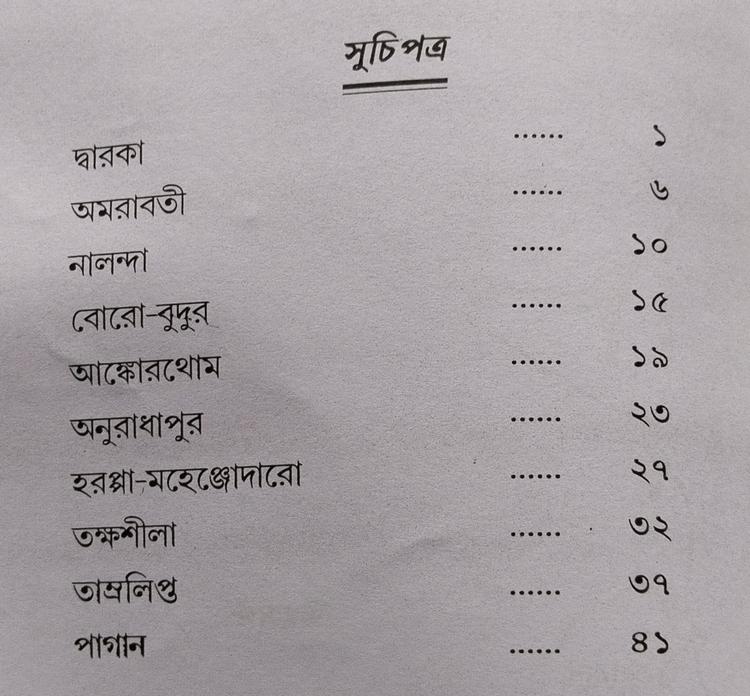 সূচিপত্র
দ্বারকা ...... ১
অমরাবতী ...... ৬
নালন্দা ...... ১০
বোরো-বুদুর ...... ১৫
আঙ্কোরথোম ...... ১৯
অনুরাধাপুর ...... ২৩
হরপ্পা-মহেঞ্জোদারো ...... ২৭
তক্ষশীলা ...... ৩২
তাম্রলিপ্ত ...... ৩৭
পাগান ...... ৪১